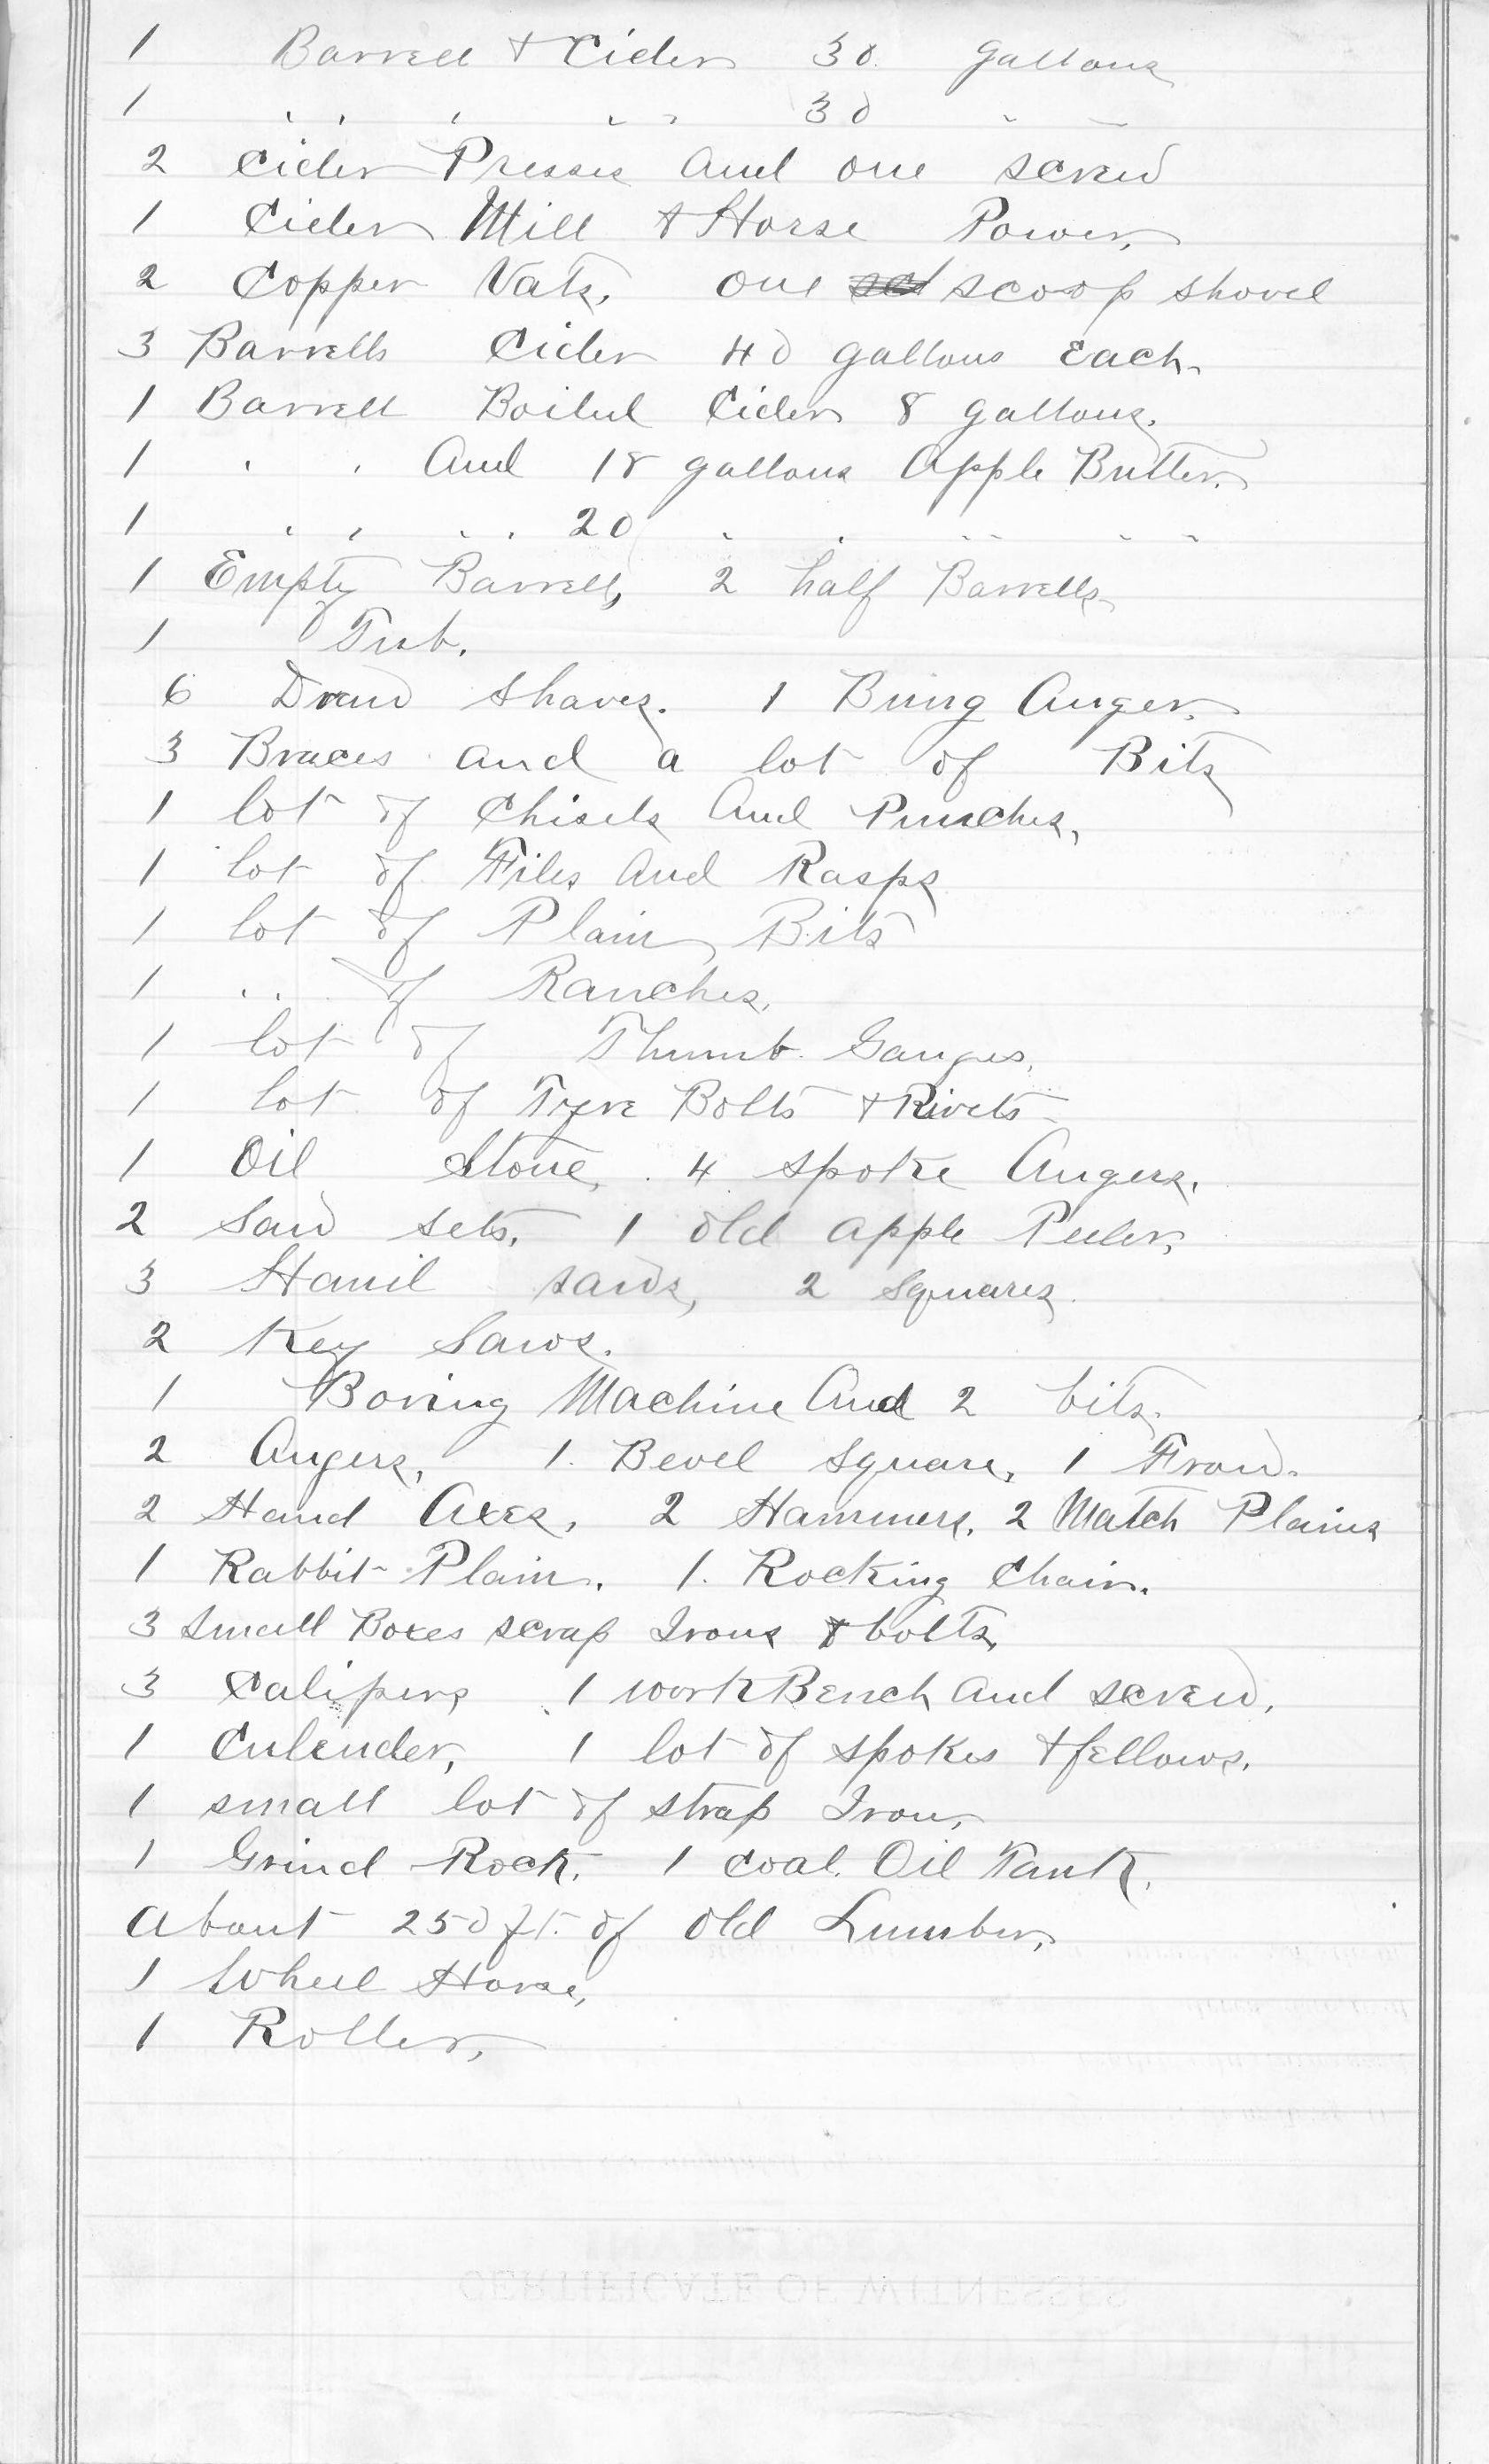 1 Barrell & Cider 30 gallons
1 " " " " " 30 " "
2 Cider Presses and one screw
1 Cider Mill & Horse Power,
2 Copper Vats, one scoop shovel
3 Barrells Cider 40 gallons Each.
1 Barrell Boiled Cider 8 gallons.
1 " " And 18 gallons Apple Butter.
1 " " " " 20 " " " " " "
1 Empty Barrell, 2 half Barrells
1 Tub.
6 Draw shaves. 1 Bung Auger.
3 Braces and a lot of Bits
1 lot of Chisels And Punches,
1 lot of Files And Rasps
1 lot of Plain Bits
1 " " of Ranches,
1 lot of Thumb Gauges,
1 lot of Tyre Bolts & Rivets
1 Oil Stone, 4 spoke Augers,
2 Saw sets, 1 old apple Peeler,
3 Hand saws, 2 Squares.
2 Key Saws.
1 Boring Machine And 2 bits.
2 Augers, 1. Bevel Square, 1 Frow.
2 Hand Axes, 2 Hammers, 2 Match Plains
1 Rabbit Plain. 1. Rocking Chair.
3 Small Boxes scrap Irons & bolts,
3 Calipers 1 work Bench And screw,
1 Culender, 1 lot of spokes & fellows.
1 small lot of strap Iron,
1 Grind Rock, 1 coal Oil Tank,
About 250 ft. of old Lumber,
1 Wheel Horse,
1 Roller,
CERTIFICATE OF WITNESSES